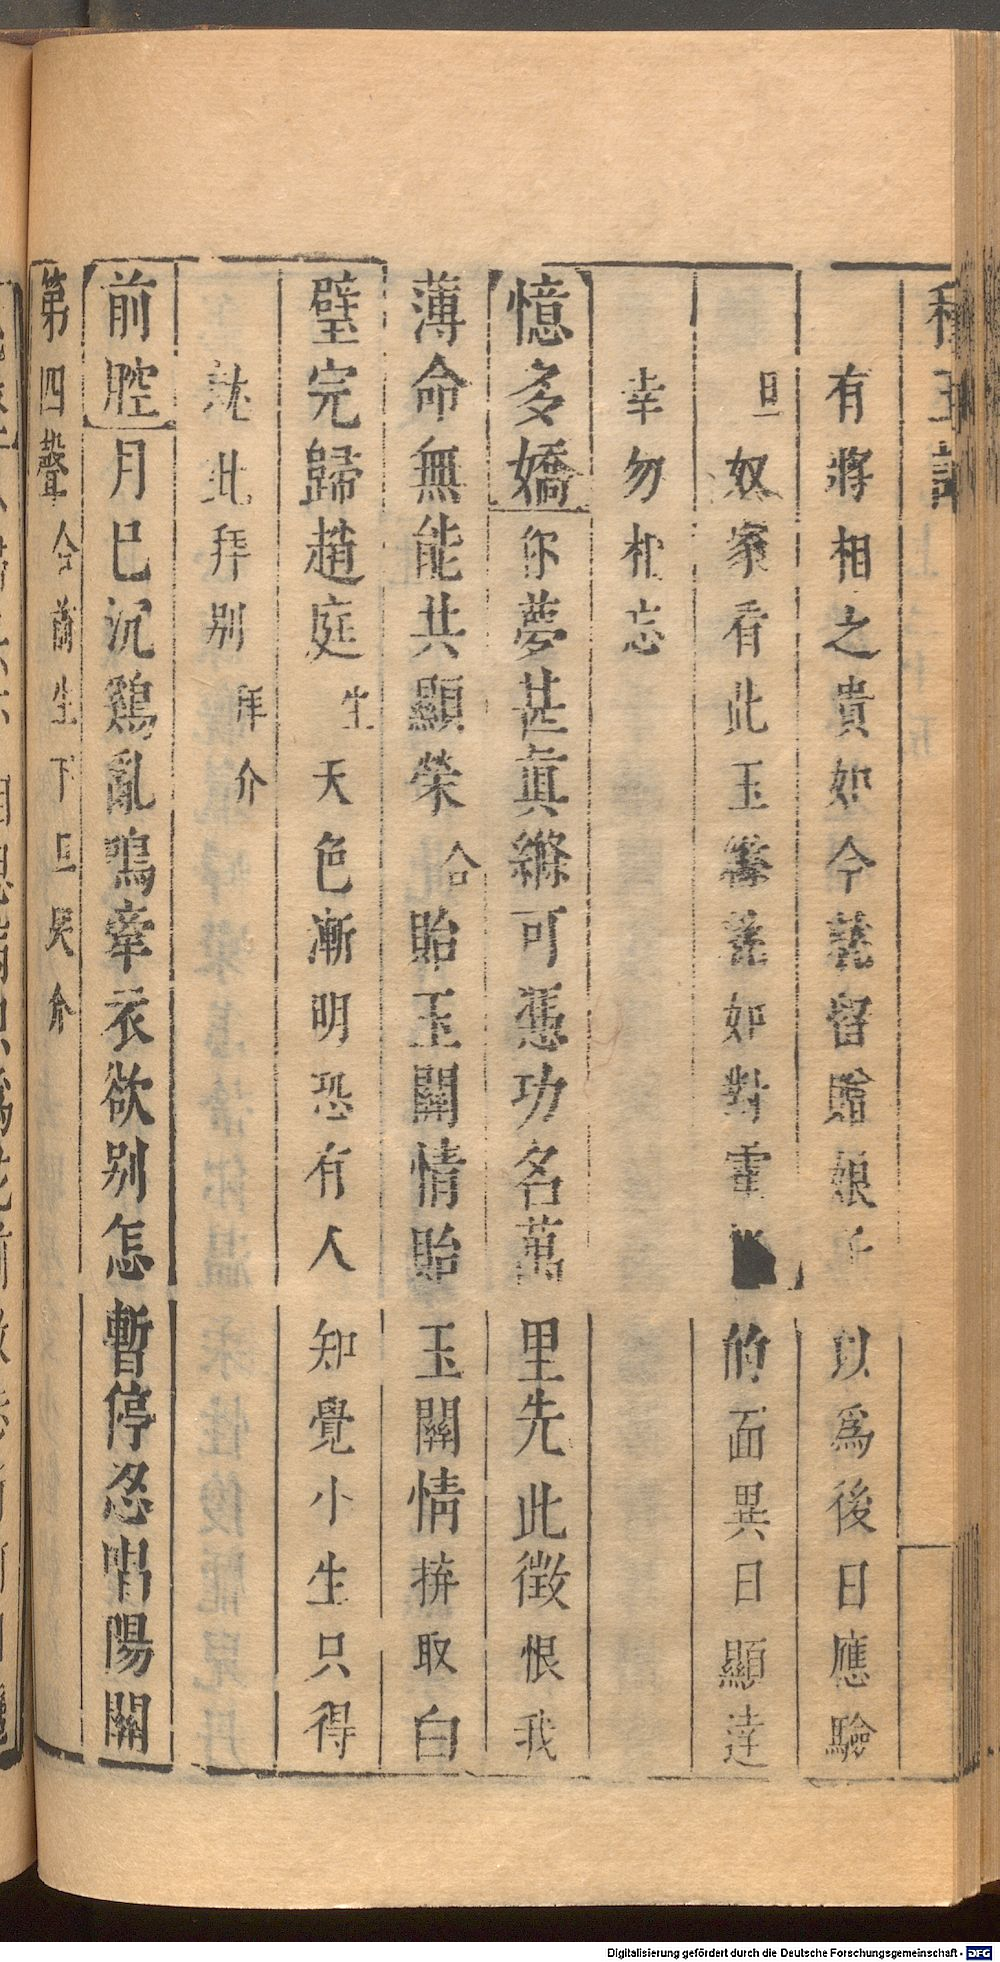 種玉記
有將相之貴如今就留贈娘子以爲後日應驗
旦奴家看此玉縧恍如對電的面異日顯達
幸勿相忘
憶多嬌你夢甚眞縧可憑功名萬里先此徵恨我
薄命無能共顯榮合貽玉關情貽玉關情拚取白
璧完歸趙庭生天色漸明恐有人知覺小生只得
就此拜别拜介
前腔月已沉鷄亂鳴牽衣欲别怎暫停忍唱陽關
第四聲合前生下旦哭介
Digitalisierung gefördert durch die Deutsche Forschungsgemeinschaft - DFG